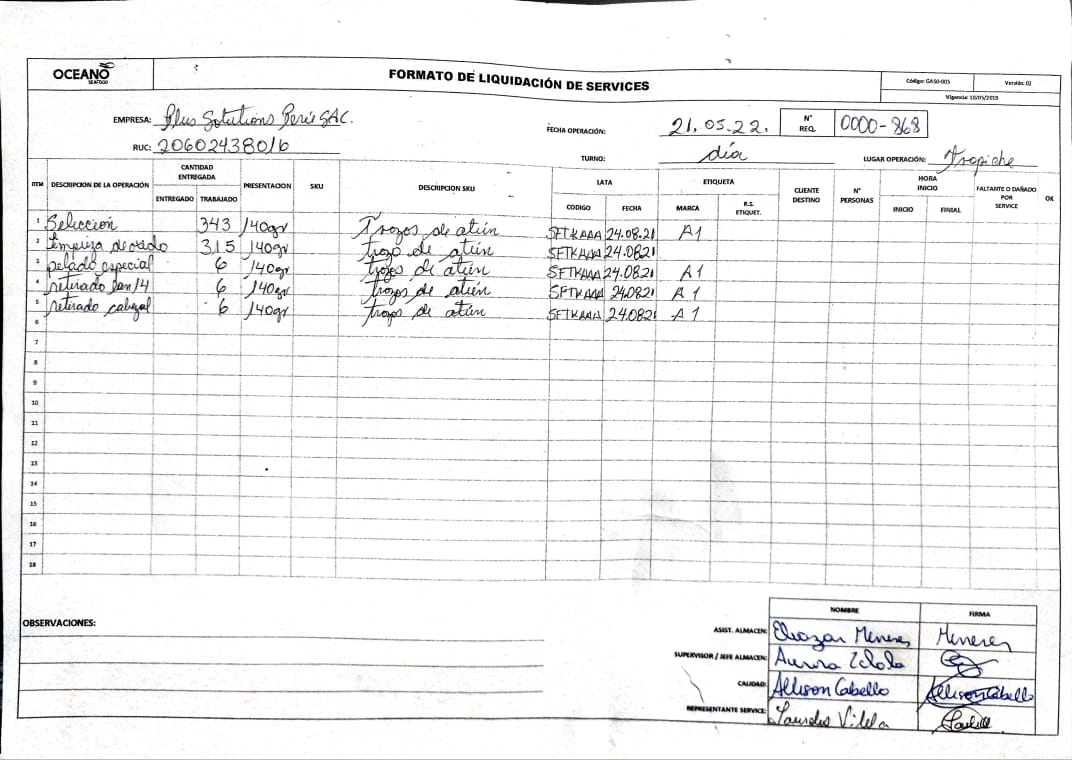 OCEANO
SEAFOOD
FORMATO DE LIQUIDACIÓN DE SERVICES
Código: GASO-005 Versión: 02
Vigencia: 10/05/2019
EMPRESA: Plus Solutions Perú SAC.
FECHA OPERACIÓN: 21.05.22. N° REQ. 0000-868
RUC: 20602438016
TURNO: día LUGAR OPERACIÓN: Trapiche
ITM DESCRIPCION DE LA OPERACIÓN CANTIDAD ENTREGADA PRESENTACION SKU DESCRIPCION SKU LATA ETIQUETA CLIENTE DESTINO N° PERSONAS HORA INICIO FALTANTE O DAÑADO POR SERVICE OK
ENTREGADO TRABAJADO CODIGO FECHA MARCA R.S. ETIQUET. INICIO FINIAL
1 Selección 343 140gr Trozos de atún SFTKAAA 24.08.21 A1
2 limpieza de oxido 315 140gr trozo de atún SFTKAAA 24.08.21
3 pelado especial 6 140gr trozos de atún SFTKAAA 24.0821 A1
4 retirado 6 140gr trozos de atún SFTKAAA 24.0821 A1
5 retirado cabezal 6 140gr trozos de atún SFTKAAA 24.0821 A1
6
7
8
9
10
11
12
13
14
15
16
17
18
OBSERVACIONES:
NOMBRE FIRMA
ASIST. ALMACEN: Eliazar Meneses Meneses
SUPERVISOR / JEFE ALMACEN: Aurora
CALIDAD: Allison Cabello Allison Cabello
REPRESENTANTE SERVICE: Lourdes Vilela